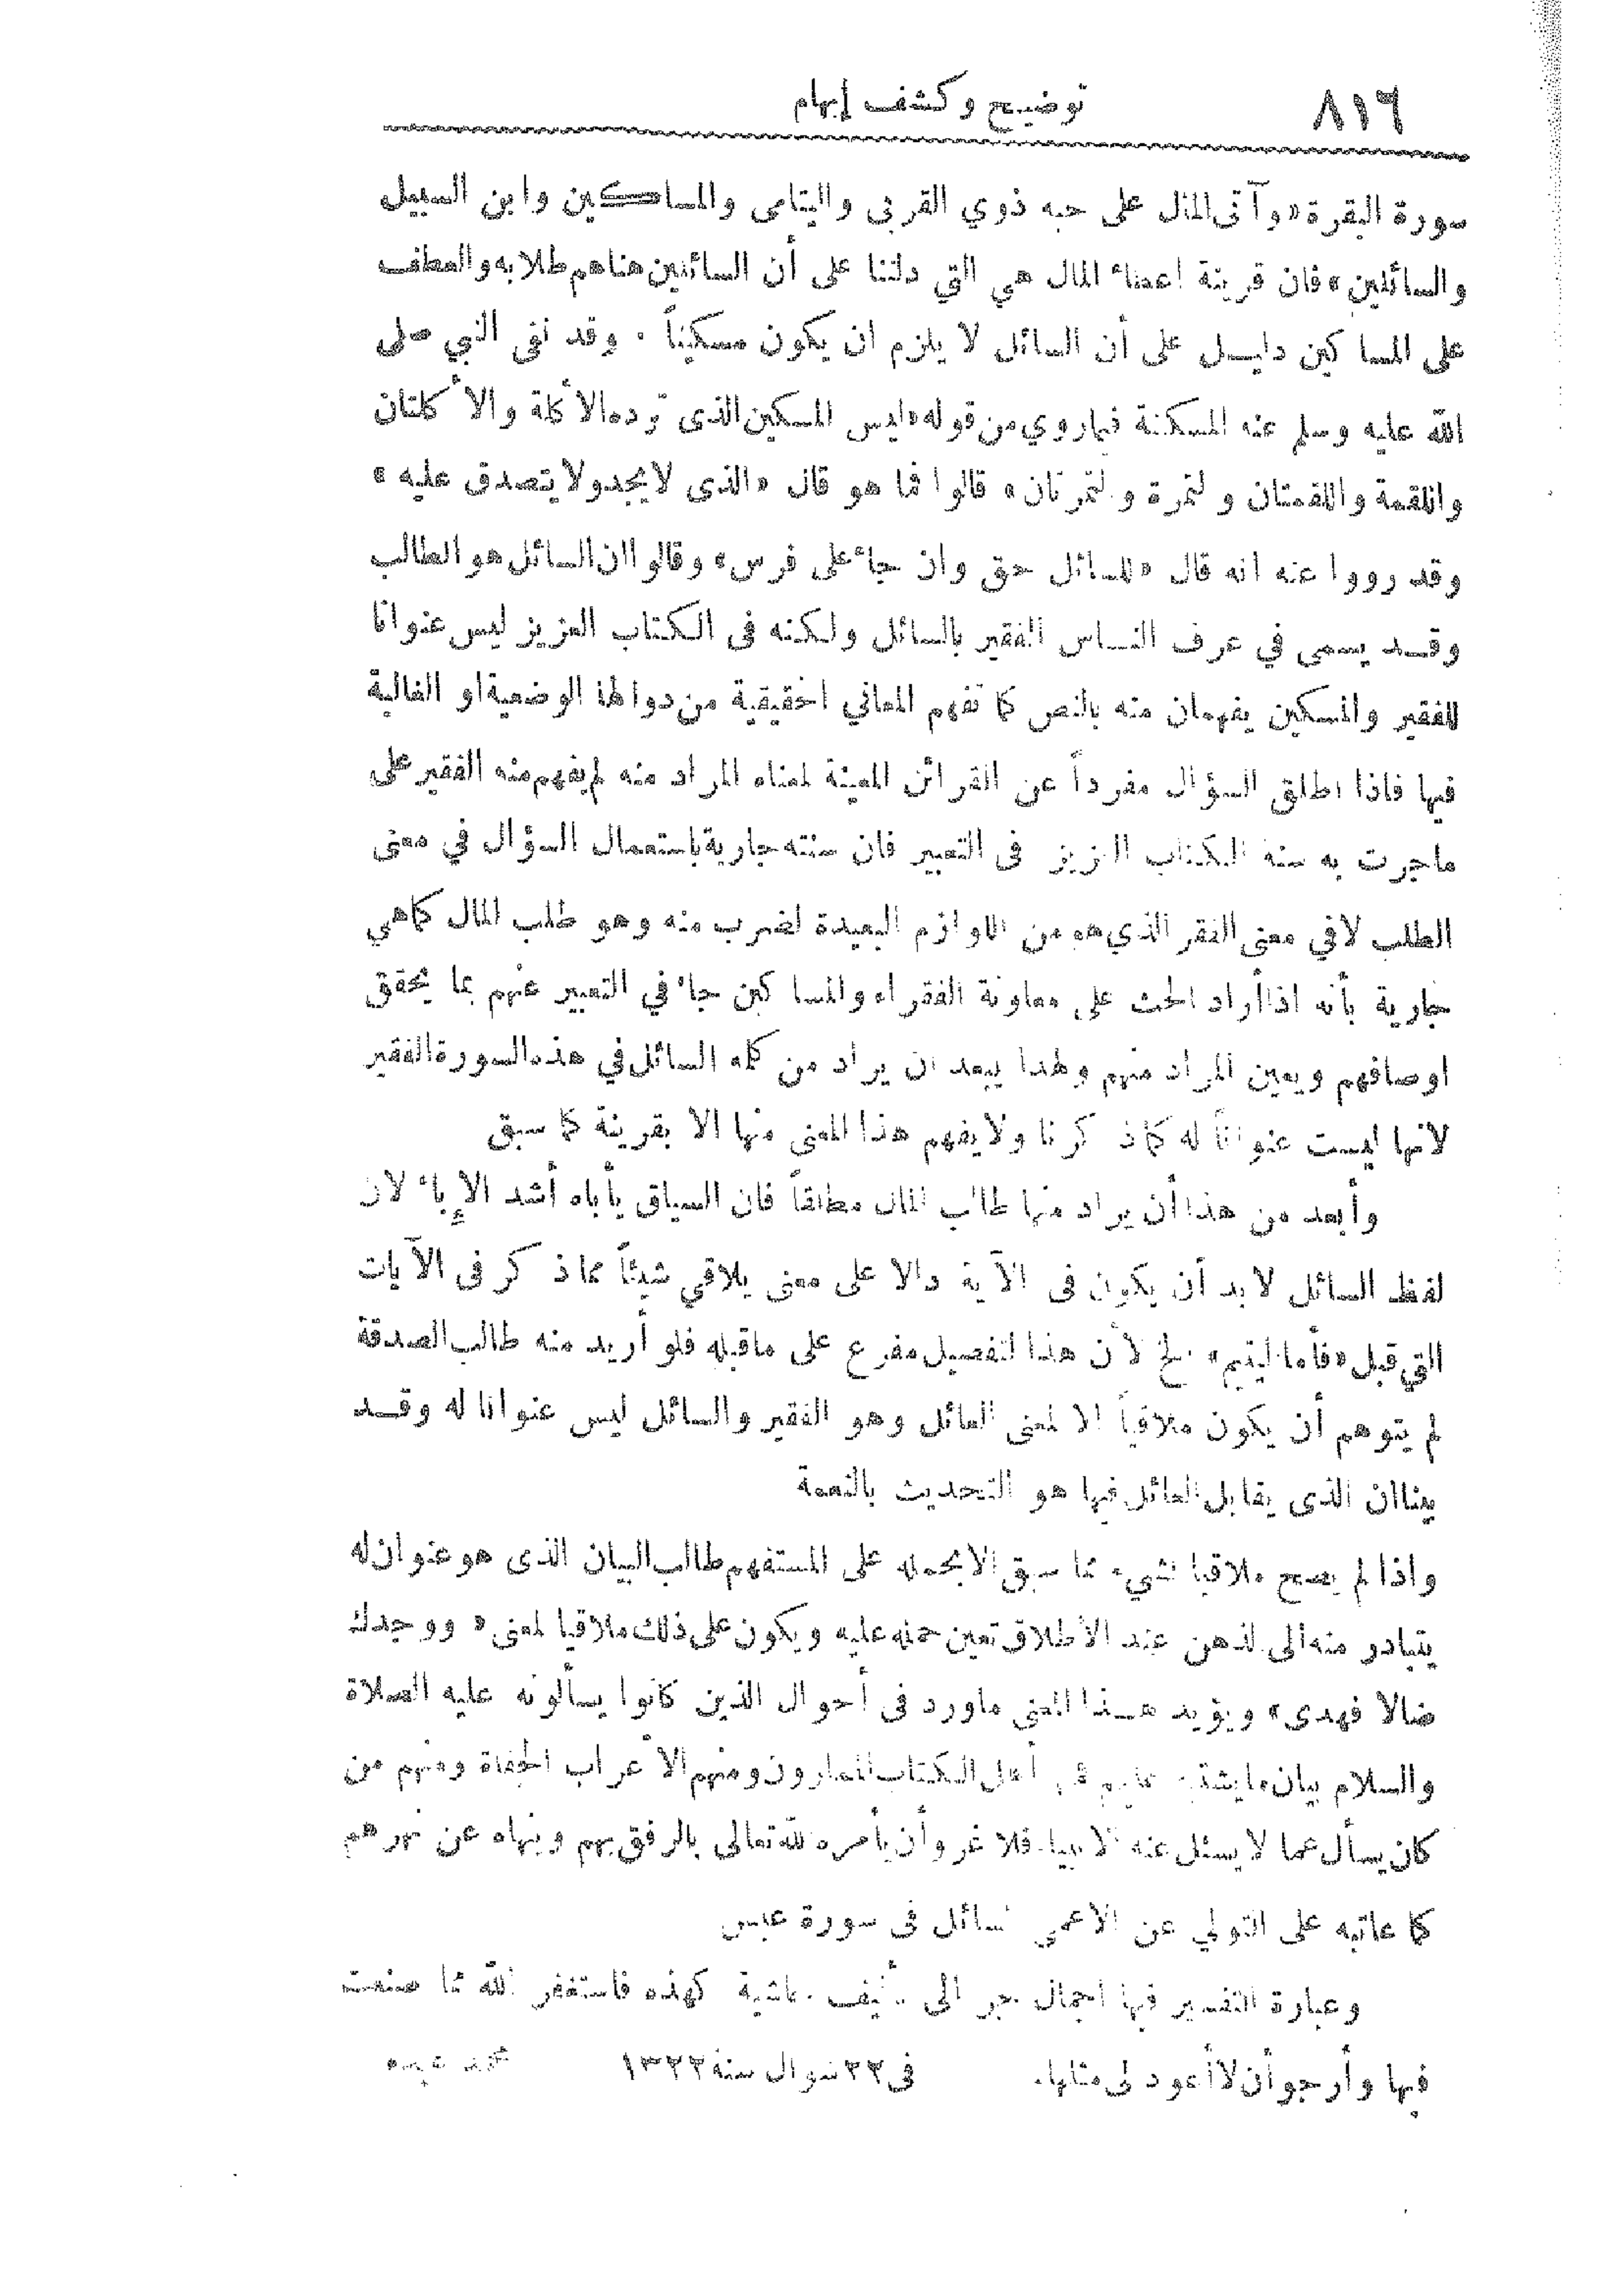 ٨١٦
توضيح وكشف إبهام
سورة البقرة «وآتى المال على حبه ذوي القربى واليتامى والمساكين وابن السبيل
والسائلين» فان قرينة اعطاء المال هي التي دلتنا على أن السائلين هنا هم طلابه والعطف
على المساكين دليل على أن السائل لا يلزم ان يكون مسكيناً . وقد نفى النبي صلى
الله عليه وسلم عنه المسكنة فيما روي من قوله «ليس المسكين الذى ترده الأكلة والأكلتان
واللقمة واللقمتان والتمرة والتمرتان» قالوا فما هو قال «الذى لا يجد ولا يتصدق عليه»
وقد رووا عنه انه قال «للسائل حق وان جاء على فرس» وقالوا ان السائل هو الطالب
وقد يسمى في عرف الناس الفقير بالسائل ولكنه فى الكتاب العزيز ليس عنوانا
للفقير والمسكين يفهمان منه بالنص كما تفهم المعاني الحقيقية من دوالها الوضعية او الغالبة
فيها فاذا اطلق السؤال مفرداً عن القرائن المعينة لمعناه المراد منه لم يفهم منه الفقير على
ماجرت به سنة الكتاب العزيز فى التعبير فان سنته جارية باستعمال السؤال في معنى
الطلب لا في معنى الفقر الذي هو من اللوازم البعيدة لضرب منه وهو طلب المال كما هي
جارية بأنه اذا أراد الحث على معاونة الفقراء والمساكين جاء في التعبير عنهم بما يحقق
اوصافهم ويعين المراد منهم ولهذا يبعد ان يراد من كلمة السائل في هذه السورة الفقير
لانها ليست عنواناً له كما ذكرنا ولا يفهم هذا المعنى منها الا بقرينة كما سبق
وأبعد من هذا أن يراد منها طالب المال مطلقاً فان السياق يأباه أشد الإباء لان
لفظ السائل لا بد أن يكون فى الآية دالا على معنى يلاقي شيئاً مما ذكر فى الآيات
التي قبل «فأما اليتيم» الخ لأن هذا التفصيل مفرع على ماقبله فلو أريد منه طالب الصدقة
لم يتوهم أن يكون ملاقياً الا لمعنى العائل وهو الفقير والسائل ليس عنوانا له وقد
بينا ان الذى يقابل العائل فيها هو التحديث بالنعمة
واذا لم يصح ملاقيا لشيء مما سبق الا بحمله على المستفهم طالب البيان الذى هو عنوان له
يتبادر منه الى الذهن عند الاطلاق تعين حمله عليه ويكون على ذلك ملاقيا لمعنى «ووجدك
ضالا فهدى» ويؤيد هذا المعنى ماورد فى أحوال الذين كانوا يسألونه عليه الصلاة
والسلام بيان مايشتبه عليهم فمنهم أهل الكتاب الممارون ومنهم الأعراب الجفاة ومنهم من
كان يسأل عما لا يسئل عنه الانبياء فلا غرو أن يأمره الله تعالى بالرفق بهم وينهاه عن نهرهم
كما عاتبه على التولي عن الاعمى السائل فى سورة عبس
وعبارة التفسير فيها اجمال جر الى تأليف حاشية كهذه فاستغفر الله مما صنعت
فيها وأرجو أن لا أعود لى مثلها.
فى ٢٢ شوال سنة ١٣٢٢
محمد عبده